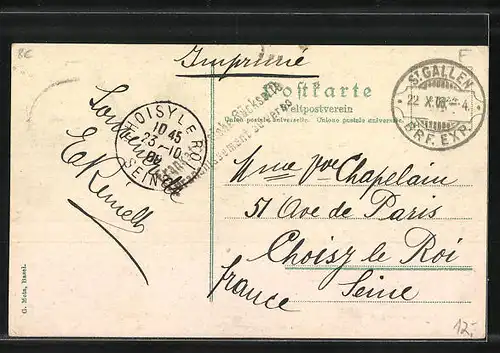 Imprimé
Postkarte
Weltpostverein
Union postale universelle. Unione postale universale.
ST. GALLEN
22 X. 08
BRF. EXP.
CHOISY LE ROI
10 45
23-10
08
SEINE
Siehe Rückseite
Souvenir de
Mme Vve Chapelain
51 Ave de Paris
Choisy le Roi
Seine
France
G. Metz, Basel.
12,-